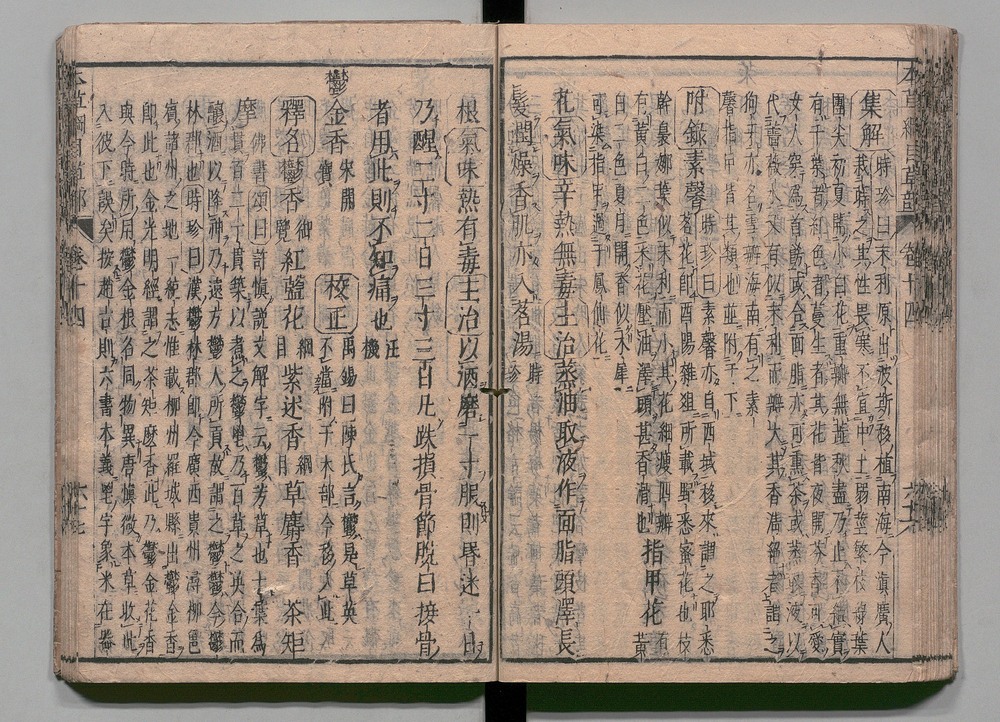 集解時珍曰末利原出波斯移植南海今滇廣人
栽蒔之其性畏寒不宜中土弱莖繁枝綠葉
團尖初夏開小白花重瓣無蕊秋盡乃止不結實
有千葉者紅色者蔓生者其花皆夜開芬香可愛
女人穿為首飾或合面脂亦可熏茶或蒸取液以
代薔薇水又有似末利而瓣大其香清絕者謂之
狗牙亦名雪瓣海南有之素
馨指甲皆其類也並附于下
附錄素馨時珍曰素馨亦自西域移來謂之耶悉
茗花即酉陽雜俎所載野悉蜜花也枝
幹裊娜葉似末利而小其花細瘦四瓣
有黃白二色采花壓油澤頭甚香滑也指甲花有黃
白二色夏月開香似木犀
可染指甲過于鳳仙花
花氣味辛熱無毒主治蒸油取液作面脂頭澤長
髮潤燥香肌亦入茗湯時珍
根氣味熱有毒主治以酒磨一寸服則昏迷一日
乃醒二寸二日三寸三日凡跌損骨節脫臼接骨
者用此則不知痛也汪機
鬱金香宋開寶校正禹錫曰陳氏言鬱是草英
不當附于木部今移入此
釋名鬱香御覽紅藍花綱目紫述香綱目草麝香茶矩
摩佛書頌曰許慎說文解字云鬱芳草也十葉為
貫百二十貫築以煮之鬱鬯乃百草之英合而
釀酒以降神乃遠方鬱人所貢故謂之鬱鬱今鬱
林郡也時珍曰漢鬱林郡即今廣西貴州潯柳邕
賓諸州之地一統志惟載柳州羅城縣出鬱金香
即此也金光明經謂之茶矩麼香此乃鬱金花香
與今時所用鬱金根名同物異唐慎微本草收此
入彼下誤矣按趙古則六書本義鬯字象米在器